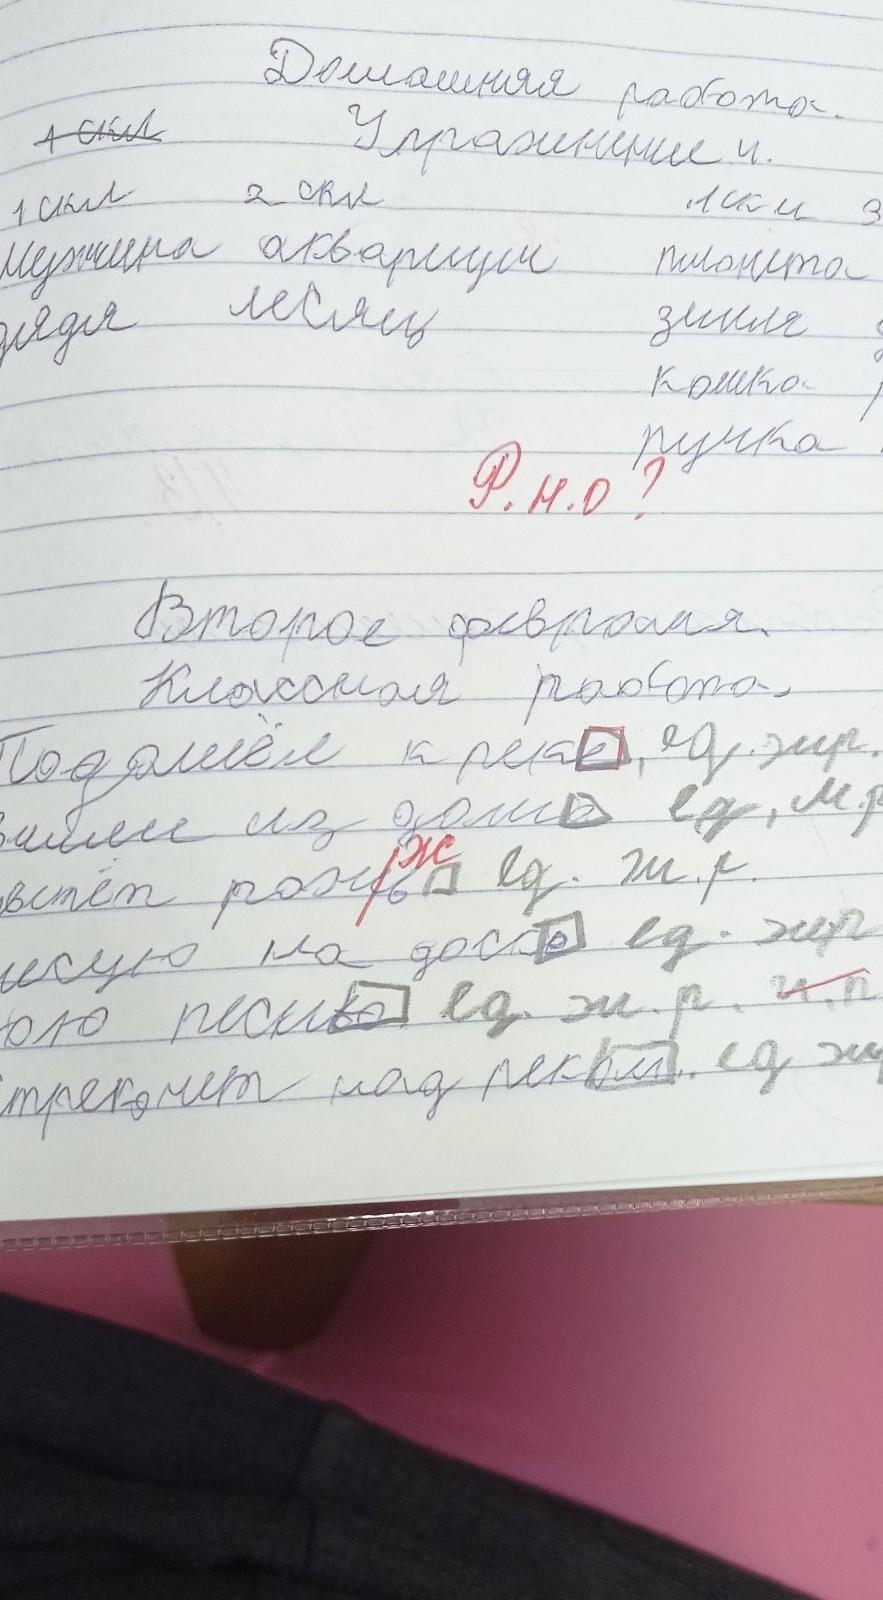 Домашняя работа.
1 скл
Упражнение 4.
1 скл 2 скл 1скл 3
Мужчина аквариум планета
дядя месяц земля
кошка
ручка
Р.н.о?
Второе февраля.
Классная работа.
Подошёл к реке, ед. ж.р.
из дома ед, м.р
рожь ж ед. ж.р.
на доске ед. ж.р
ою песню ед. ж.р. и.п
стрекочет над рекой. ед жр